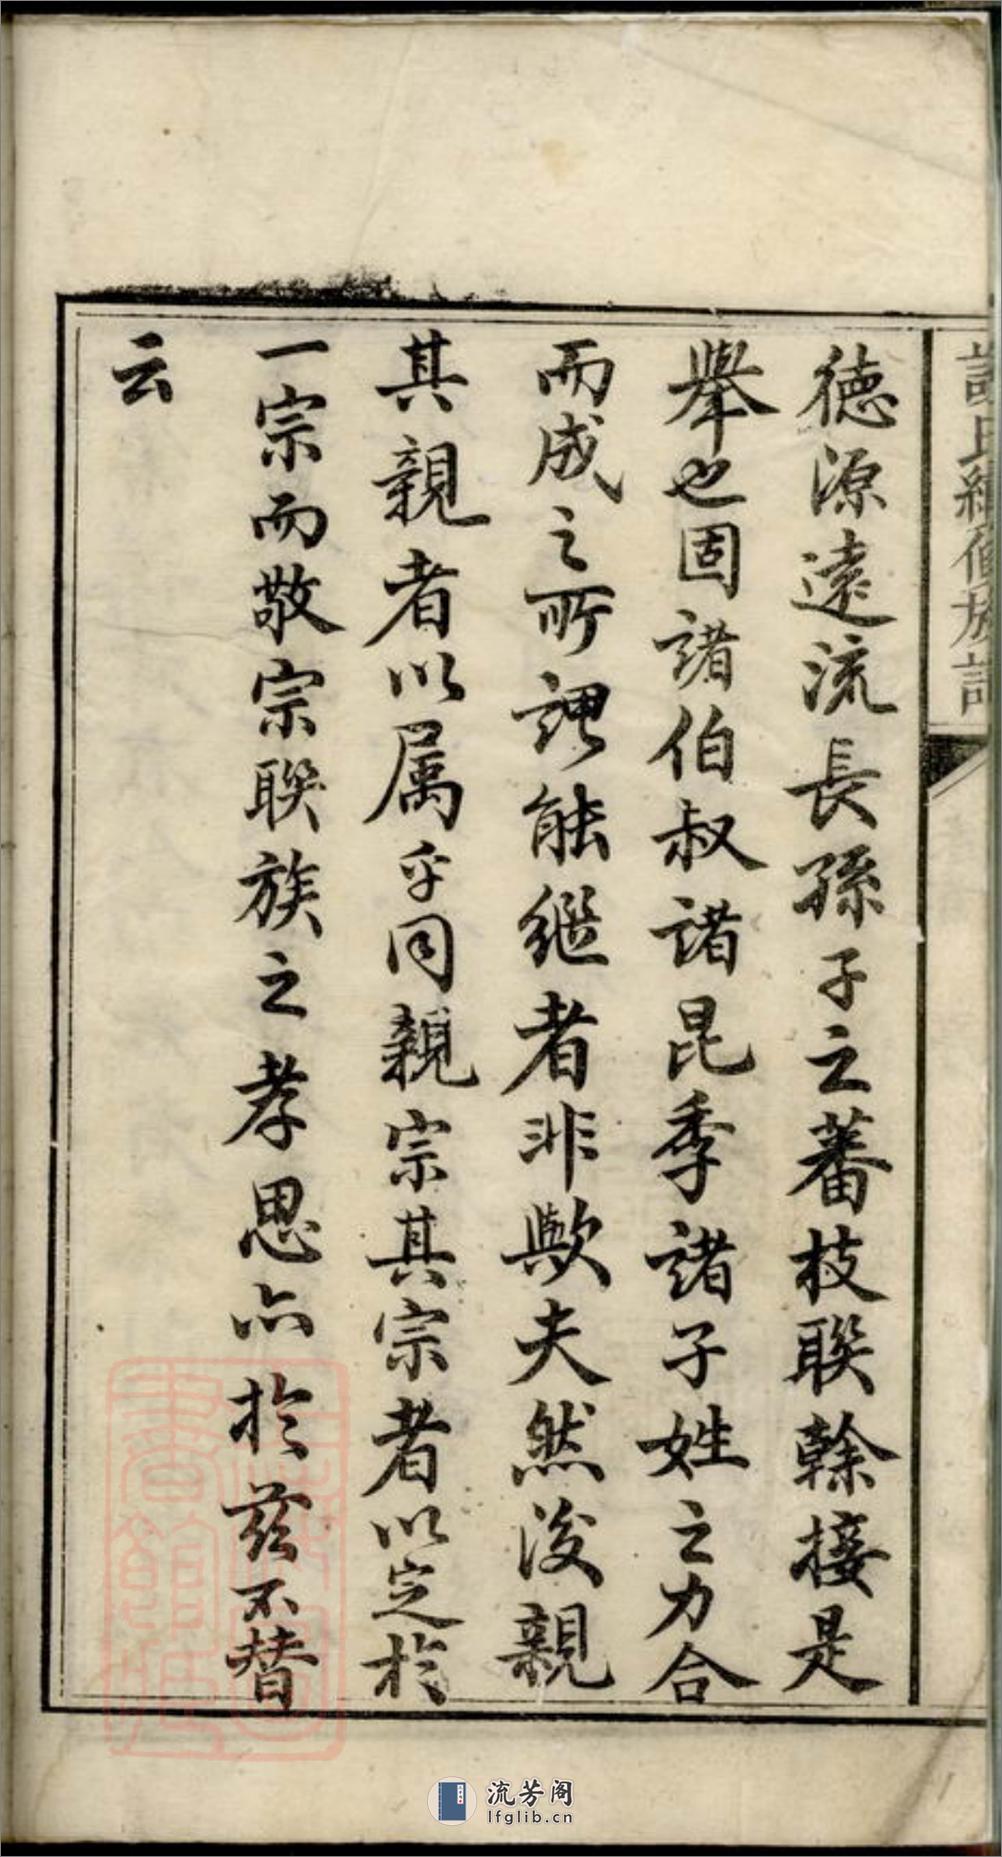 德源遠流長孫子之蕃枝聯榦接是
舉也固諸伯叔諸昆季諸子姓之力合
而成之所謂能繼者非歟夫然後親
其親者以属乎同親宗其宗者以定於
一宗而敬宗聯族之孝思亦於茲不替
云
氏續修族譜
流芳阁
lfglib.cn